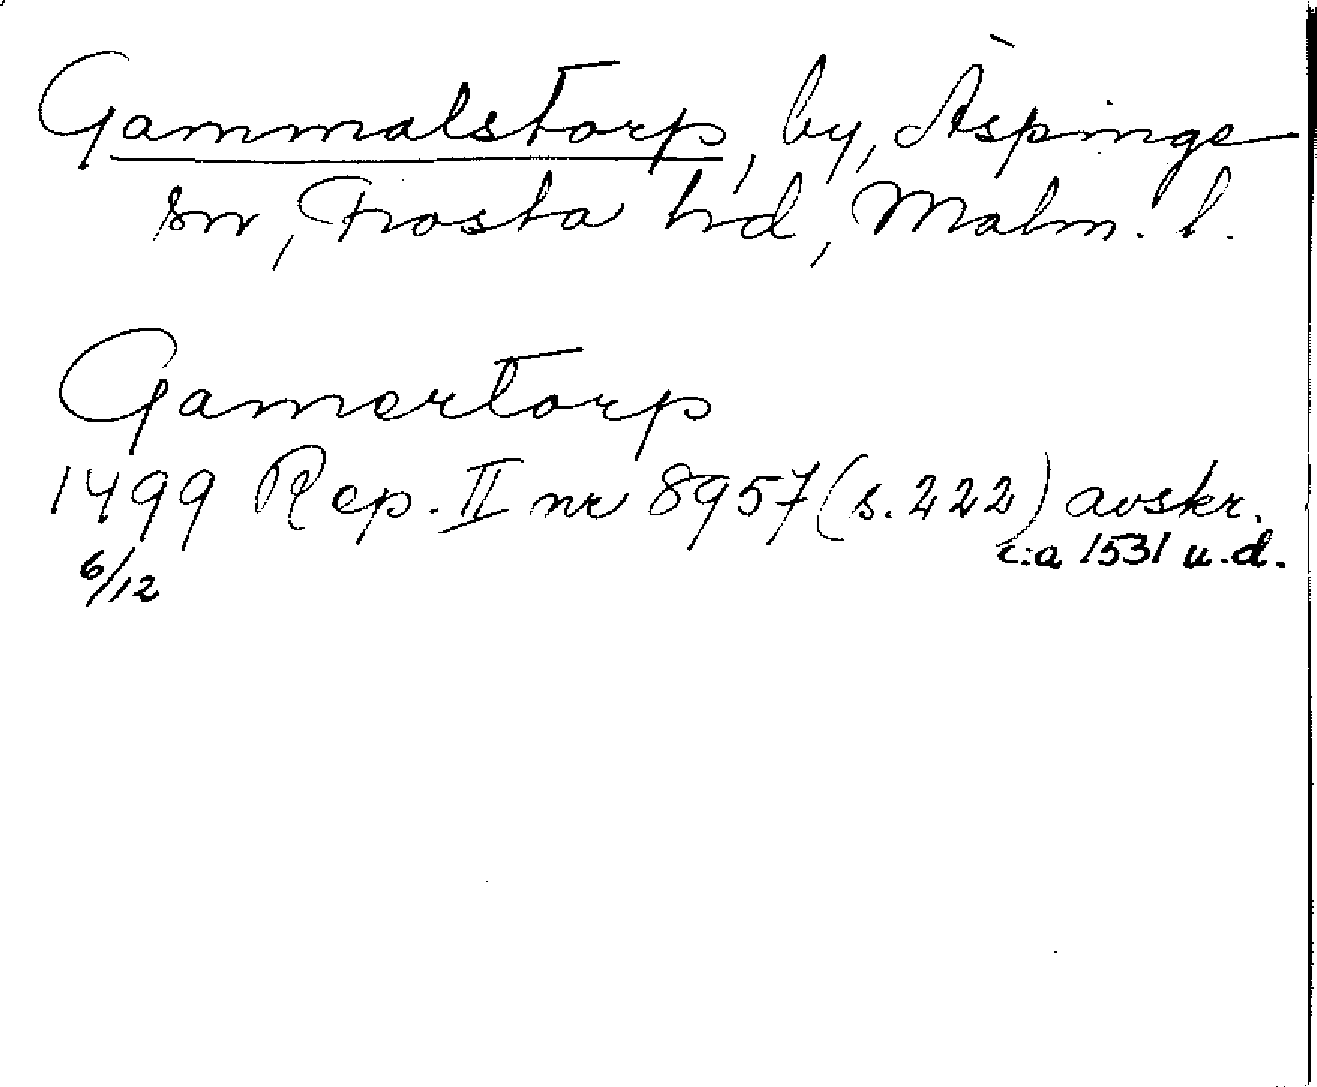 Gammalstorp, by, Äspinge
sn, Frosta hd, Malm. l.
Gamertorp
1499 Rep. II nr 8957 (s. 222) avskr.
6/12 c:a 1531 u.d.